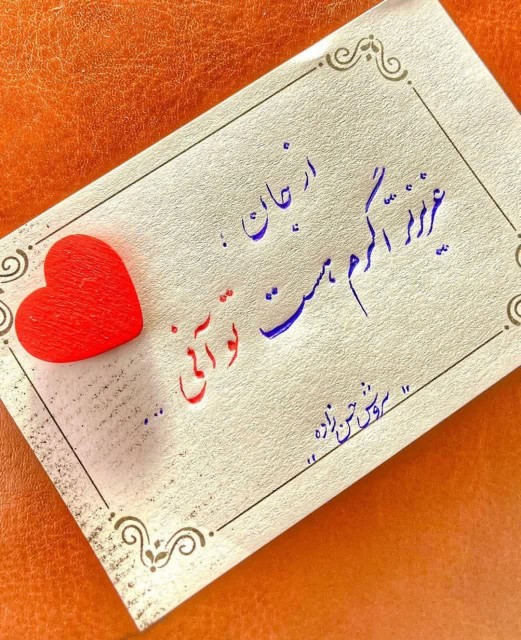 از جان ؛
عزیزتر اگرم هست تو آنی ...
"سروش حسن زاده"